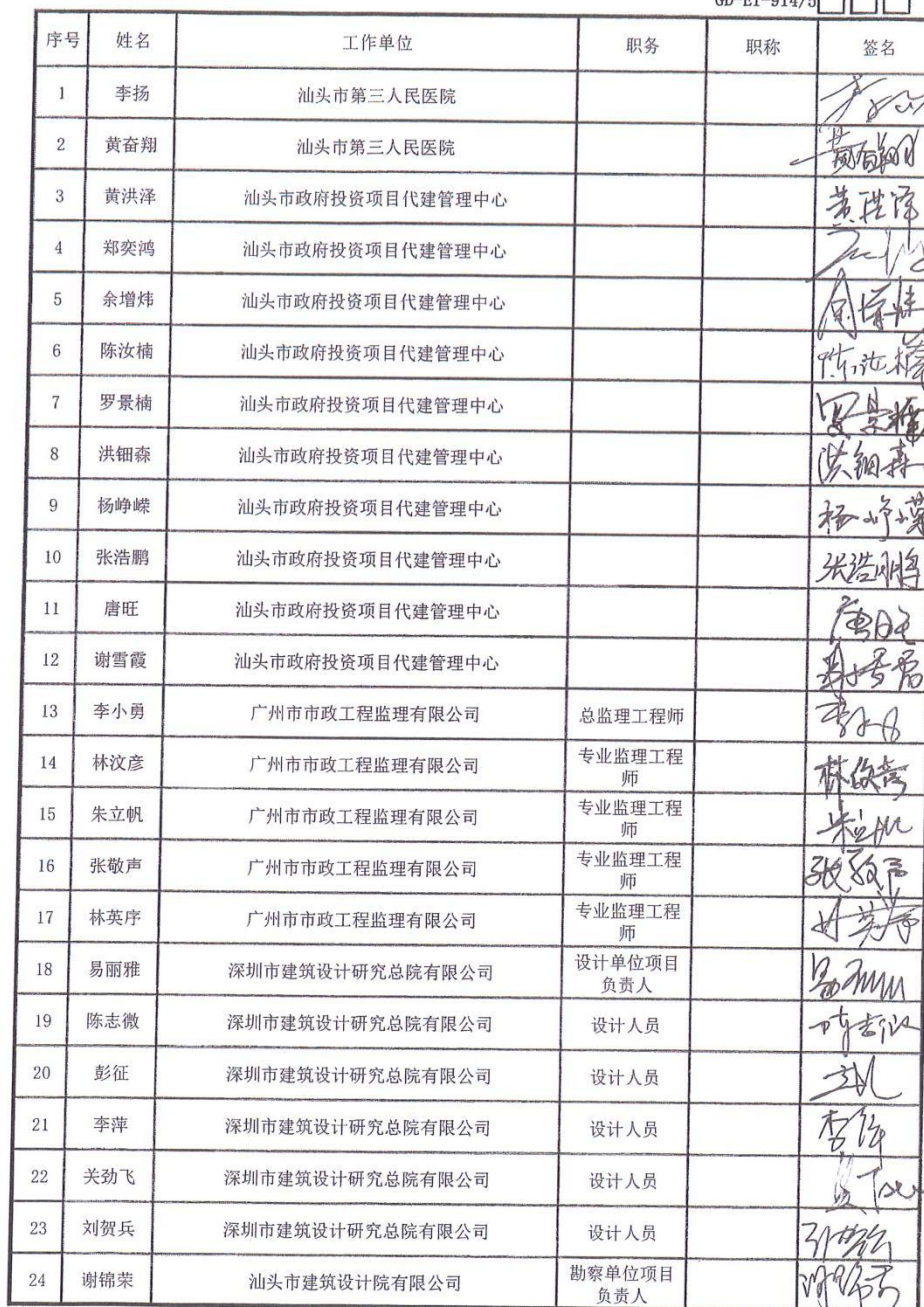 GD-E1-914/5
序号 姓名 工作单位 职务 职称 签名
1 李扬 汕头市第三人民医院
2 黄奋翔 汕头市第三人民医院
3 黄洪泽 汕头市政府投资项目代建管理中心 黄洪泽
4 郑奕鸿 汕头市政府投资项目代建管理中心
5 余增炜 汕头市政府投资项目代建管理中心
6 陈汝楠 汕头市政府投资项目代建管理中心 陈汝楠
7 罗景楠 汕头市政府投资项目代建管理中心 罗景楠
8 洪钿森 汕头市政府投资项目代建管理中心 洪钿森
9 杨峥嵘 汕头市政府投资项目代建管理中心 杨峥嵘
10 张浩鹏 汕头市政府投资项目代建管理中心 张浩鹏
11 唐旺 汕头市政府投资项目代建管理中心 唐旺
12 谢雪霞 汕头市政府投资项目代建管理中心
13 李小勇 广州市市政工程监理有限公司 总监理工程师
14 林汶彦 广州市市政工程监理有限公司 专业监理工程
师
15 朱立帆 广州市市政工程监理有限公司 专业监理工程
师
16 张敬声 广州市市政工程监理有限公司 专业监理工程
师 张敬声
17 林英序 广州市市政工程监理有限公司 专业监理工程
师
18 易丽雅 深圳市建筑设计研究总院有限公司 设计单位项目
负责人
19 陈志微 深圳市建筑设计研究总院有限公司 设计人员
20 彭征 深圳市建筑设计研究总院有限公司 设计人员
21 李萍 深圳市建筑设计研究总院有限公司 设计人员
22 关劲飞 深圳市建筑设计研究总院有限公司 设计人员
23 刘贺兵 深圳市建筑设计研究总院有限公司 设计人员
24 谢锦荣 汕头市建筑设计院有限公司 勘察单位项目
负责人